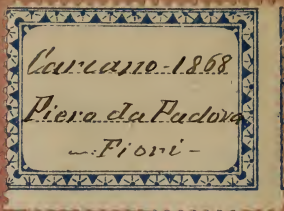 Carcano-1868
Piero da Padova
-:Fiori-